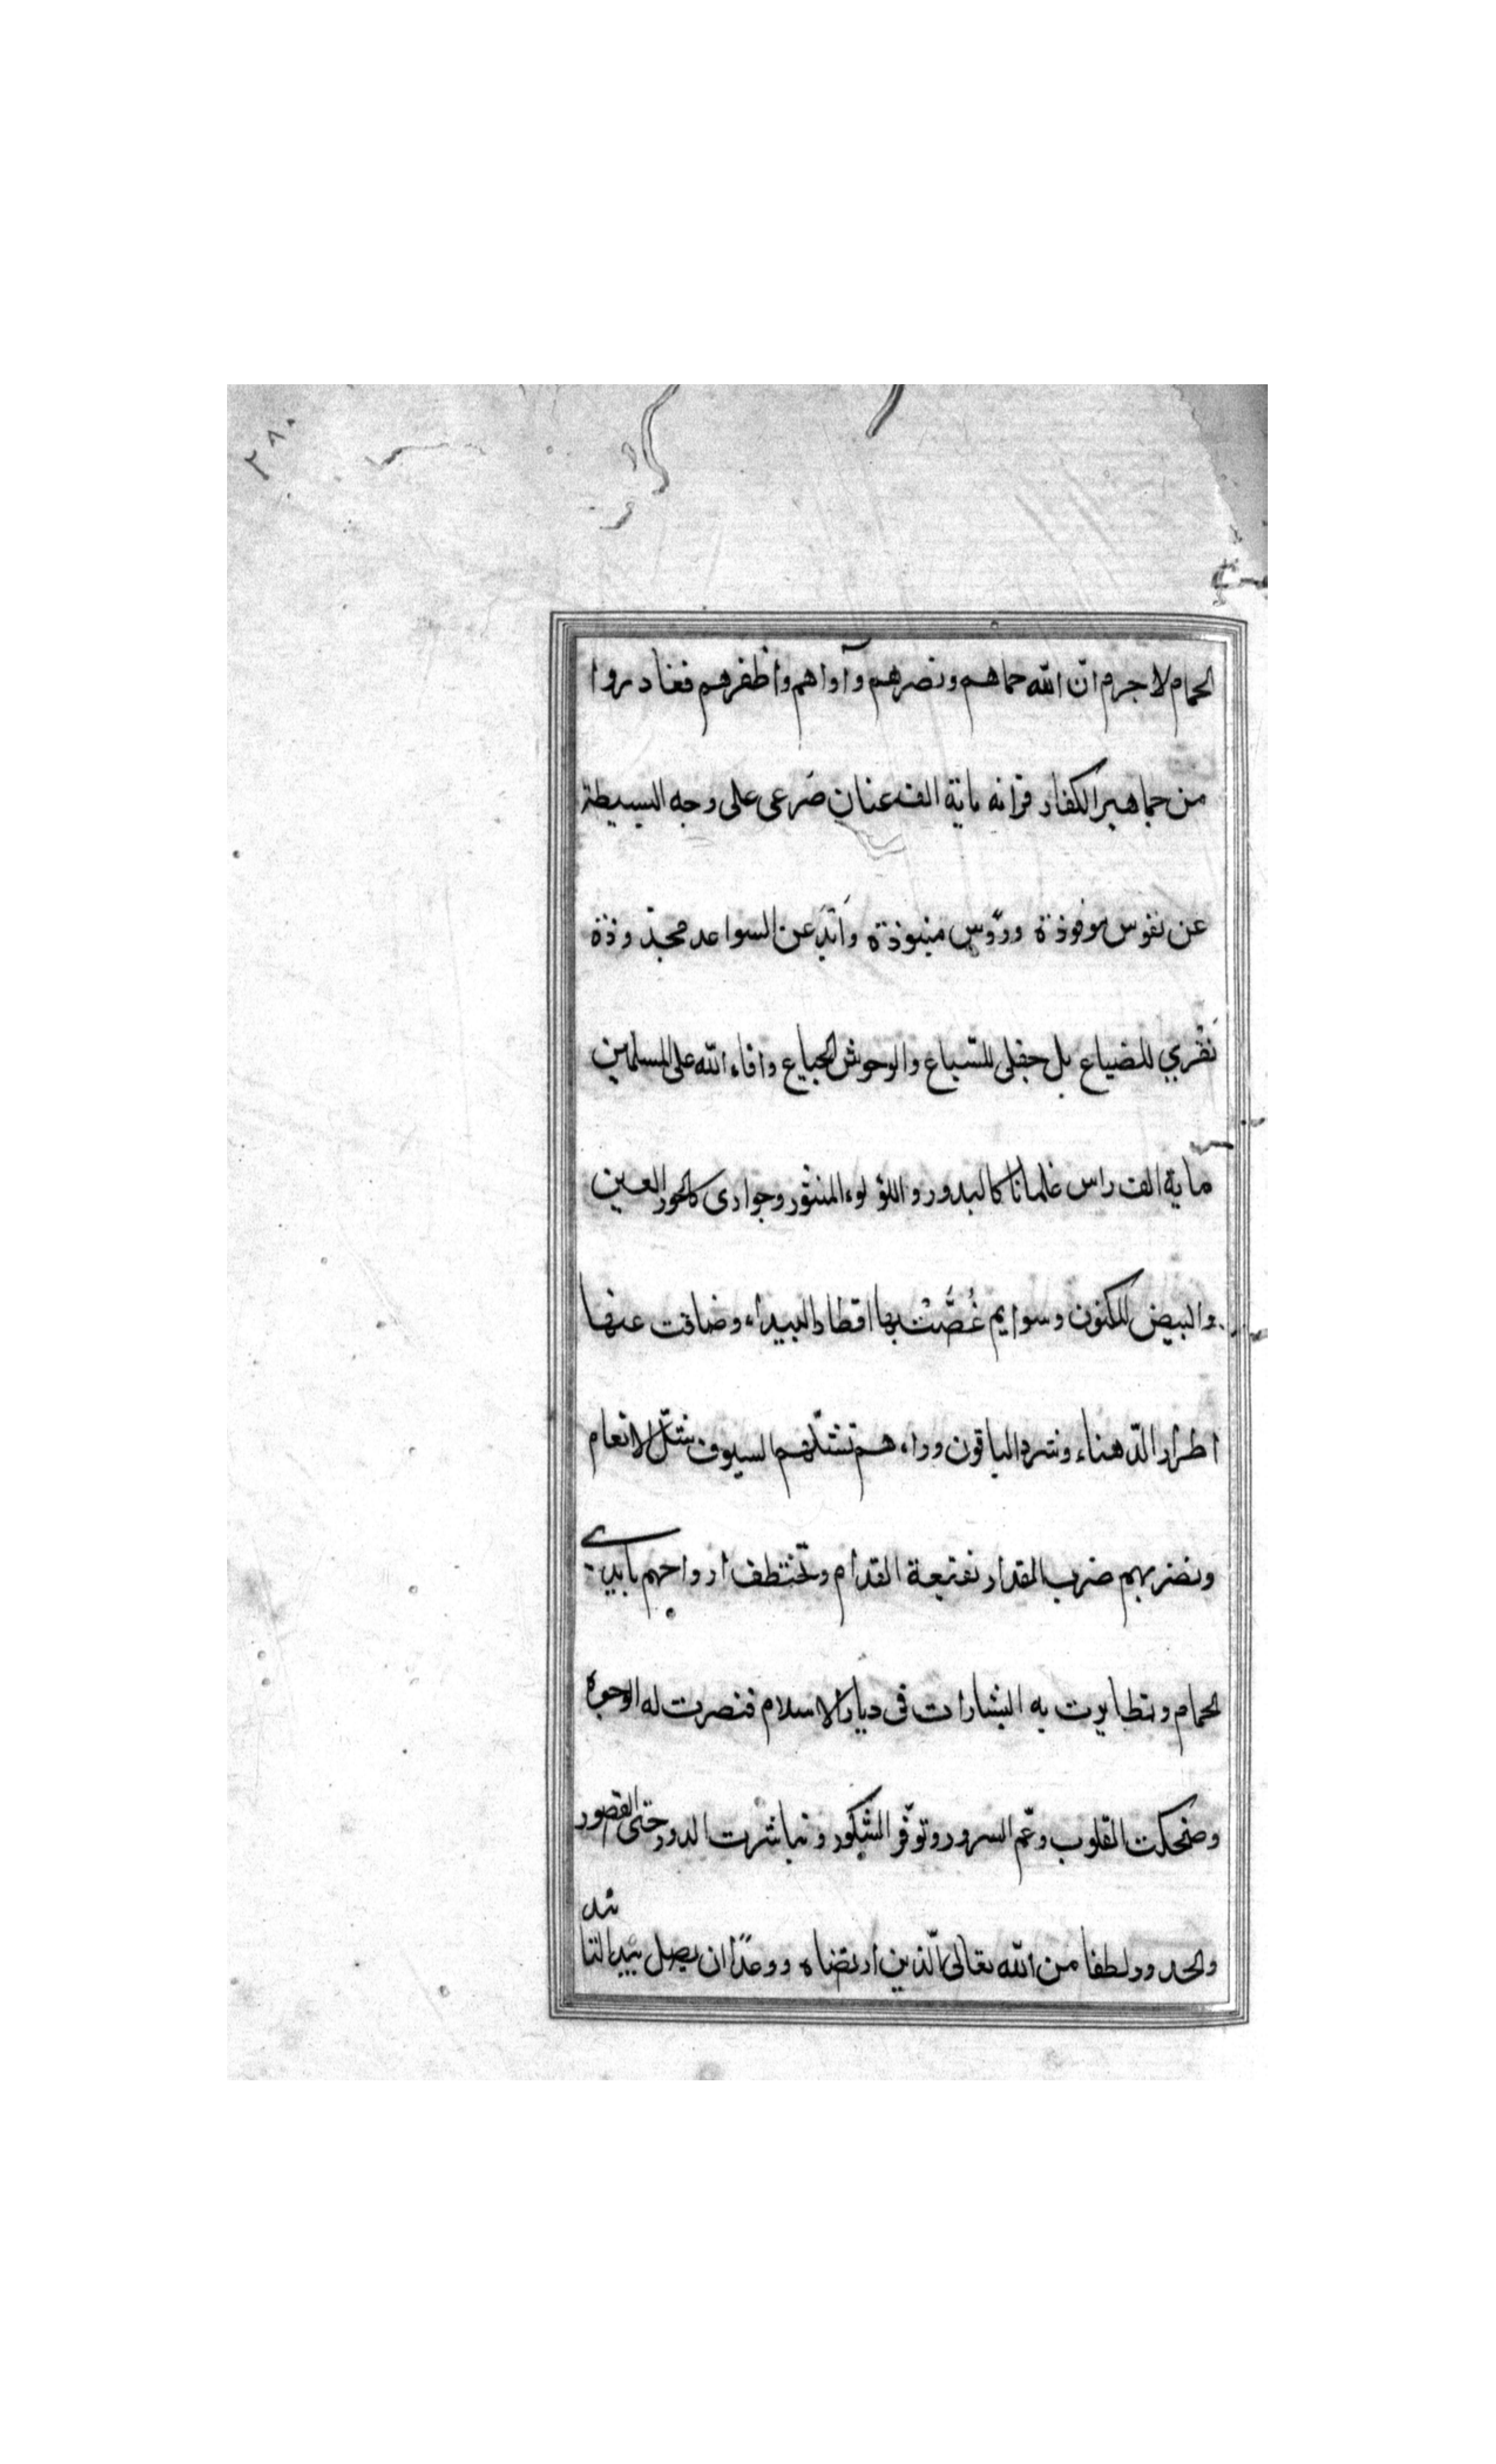 ٢٨٠
الحمام لا جرم انّ الله حماهم ونصرهم وآواهم واظفرهم فغادروا
من جماهير الكفار قرانه ماية الف عنان صَرعى على وجه البسيطة
عن نفوس موقوذة ورؤس منبوذة وَايَدٍ عن السواعد مجذّوذة
نَقْري للضياع بل جفلى للسّباع والوحوش الجياع وافاء الله على المسلمين
ماية الف راس غلمانا كالبدور واللؤلوء المنثور وجوارى كالحور العين
والبيض المكنون وسوايم غُصَّتْ بها اقطار البيداء وضاقت عنها
اطرار الدّهناء وشرد الباقون وراءهم تشلّهم السيوف شلّ الانعام
ونضربهم ضرب القدار نقيعة القدام وتختطف ارواحهم بايدي
الحمام وتطايرت به البشارات فى ديار الاسلام فنضرت له الوجوه
وضحكت القلوب وعّم السرور وتوفّر الشكور وتباشرت الدور حتى القصور
والخدور لطفا من الله تعالى الّذين ارتضاه ووعدًا ان يصل بيد التا
ئيد